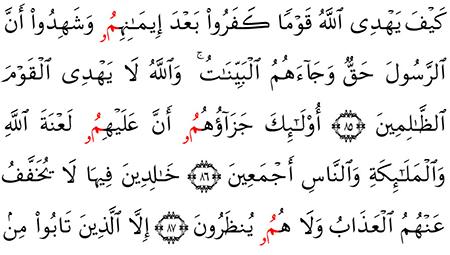 كَيْفَ يَهْدِى ٱللَّهُ قَوْمًا كَفَرُوا۟ بَعْدَ إِيمَـٰنِهِمُۥ وَشَهِدُوٓا۟ أَنَّ
ٱلرَّسُولَ حَقٌّ وَجَآءَهُمُ ٱلْبَيِّنَـٰتُ ۚ وَٱللَّهُ لَا يَهْدِى ٱلْقَوْمَ
ٱلظَّـٰلِمِينَ ٨٥ أُو۟لَـٰٓئِكَ جَزَآؤُهُمُۥٓ أَنَّ عَلَيْهِمُۥ لَعْنَةَ ٱللَّهِ
وَٱلْمَلَـٰٓئِكَةِ وَٱلنَّاسِ أَجْمَعِينَ ٨٦ خَـٰلِدِينَ فِيهَا لَا يُخَفَّفُ
عَنْهُمُ ٱلْعَذَابُ وَلَا هُمُۥ يُنظَرُونَ ٨٧ إِلَّا ٱلَّذِينَ تَابُوا۟ مِنۢ